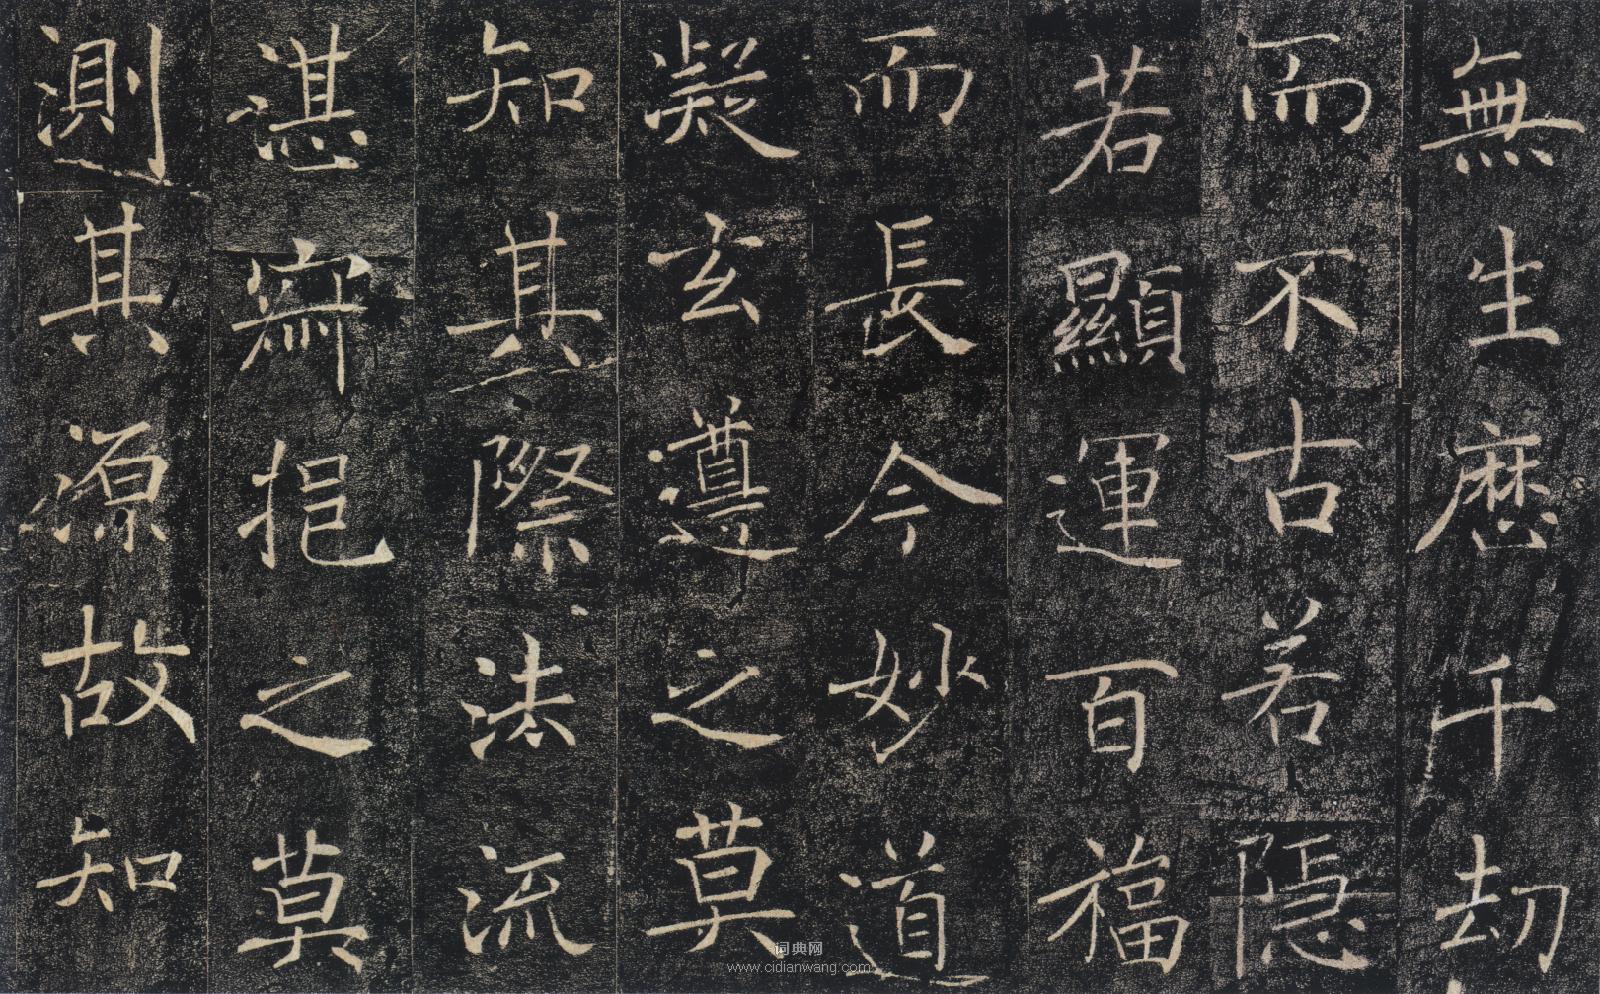 無生歷千劫
而不古若隱
若顯運百福
而長今妙道
凝玄遵之莫
知其際法流
湛寂挹之莫
測其源故知
词典网
www.cidianwang.com